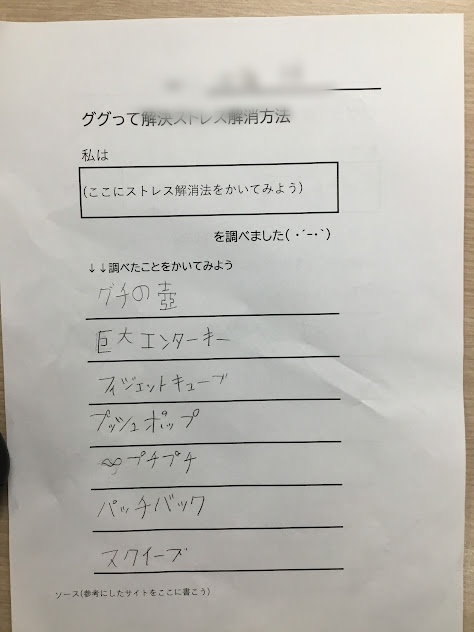 ググって解決ストレス解消方法
私は
(ここにストレス解消法をかいてみよう)
を調べました( ･´ｰ･｀)
↓↓調べたことをかいてみよう
グチの壺
巨大エンターキー
フィジェットキューブ
プッシュポップ
∞プチプチ
パッチバック
スクイーブ
ソース(参考にしたサイトをここに書こう)